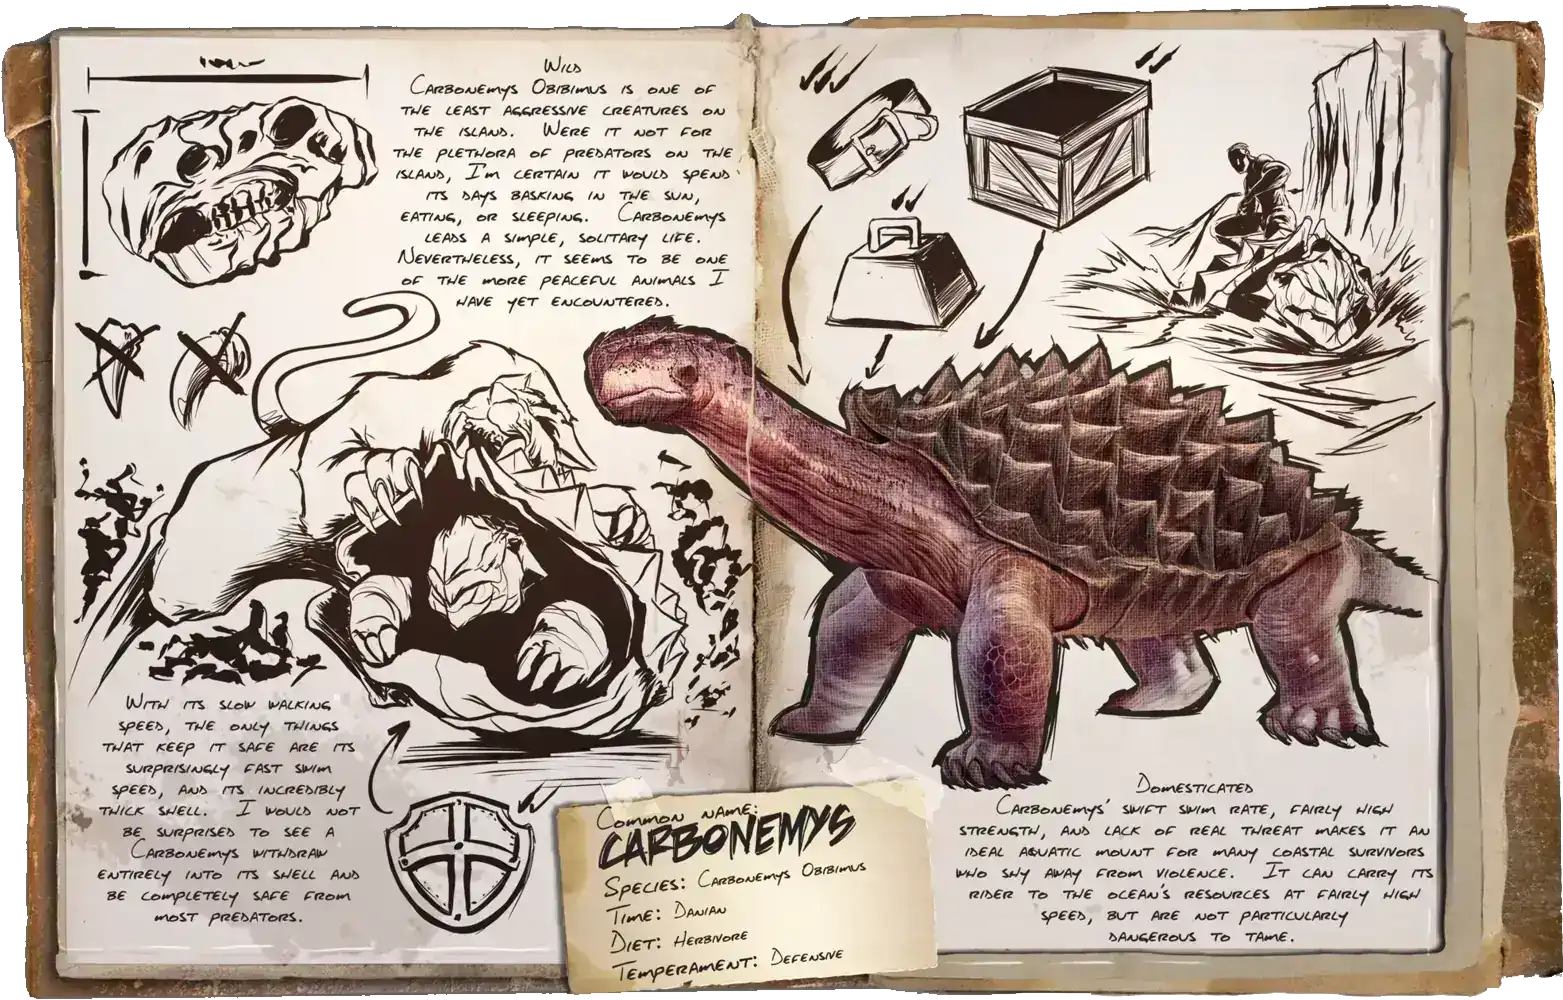 Wild
Carbonemys Obibimus is one of
the least aggressive creatures on
the island. Were it not for
the plethora of predators on the
island, I'm certain it would spend
its days basking in the sun,
eating, or sleeping. Carbonemys
leads a simple, solitary life.
Nevertheless, it seems to be one
of the more peaceful animals I
have yet encountered.
With its slow walking
speed, the only things
that keep it safe are its
surprisingly fast swim
speed, and its incredibly
thick shell. I would not
be surprised to see a
Carbonemys withdraw
entirely into its shell and
be completely safe from
most predators.
Common name:
CARBONEMYS
Species: Carbonemys Obibimus
Time: Danian
Diet: Herbivore
Temperament: Defensive
Domesticated
Carbonemys' swift swim rate, fairly high
strength, and lack of real threat makes it an
ideal aquatic mount for many coastal survivors
who shy away from violence. It can carry its
rider to the ocean's resources at fairly high
speed, but are not particularly
dangerous to tame.